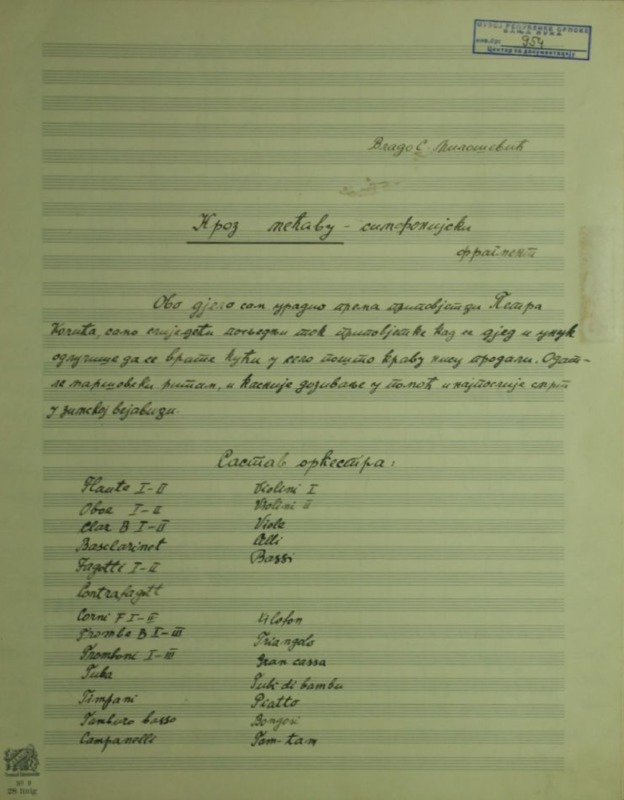 МУЗЕЈ РЕПУБЛИКЕ СРПСКЕ
БАЊА ЛУКА
954
Центар за документацију
Владо С. Милошевић
Кроз мећаву - симфонијски
фрагмент
Ово дјело сам урадио према приповјетци Петра
Кочића, само слиједећи посљедњи ток приповјетке кад се дјед и унук
одлучише да се врате кући у село пошто краву нису продали. Одат-
ле маршовски ритам, и касније дозивање у помоћ и најпослије смрт
у зимској вејавици.
Састав оркестра:
Flaute I-II
Oboe I-II
Clar B I-II
Basclarinet
Fagotti I-II
Contrafagott
Corni F I-II
Trombe B I-III
Tromboni I-III
Tuba
Timpani
Tamburo basso
Campanelli
Violini I
Violini II
Viole
Celli
Bassi
Xilofon
Triangolo
Gran cassa
Tubi di bambu
Piatto
Bongosi
Tam-tam
№ 3